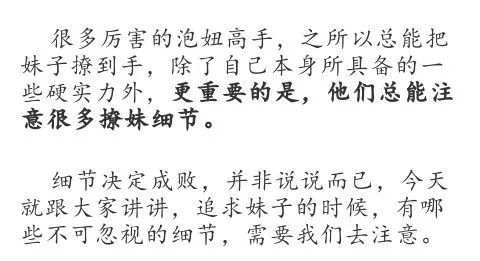 很多厉害的泡妞高手，之所以总能把
妹子撩到手，除了自己本身所具备的一
些硬实力外，更重要的是，他们总能注
意很多撩妹细节。
细节决定成败，并非说说而已，今天
就跟大家讲讲，追求妹子的时候，有哪
些不可忽视的细节，需要我们去注意。